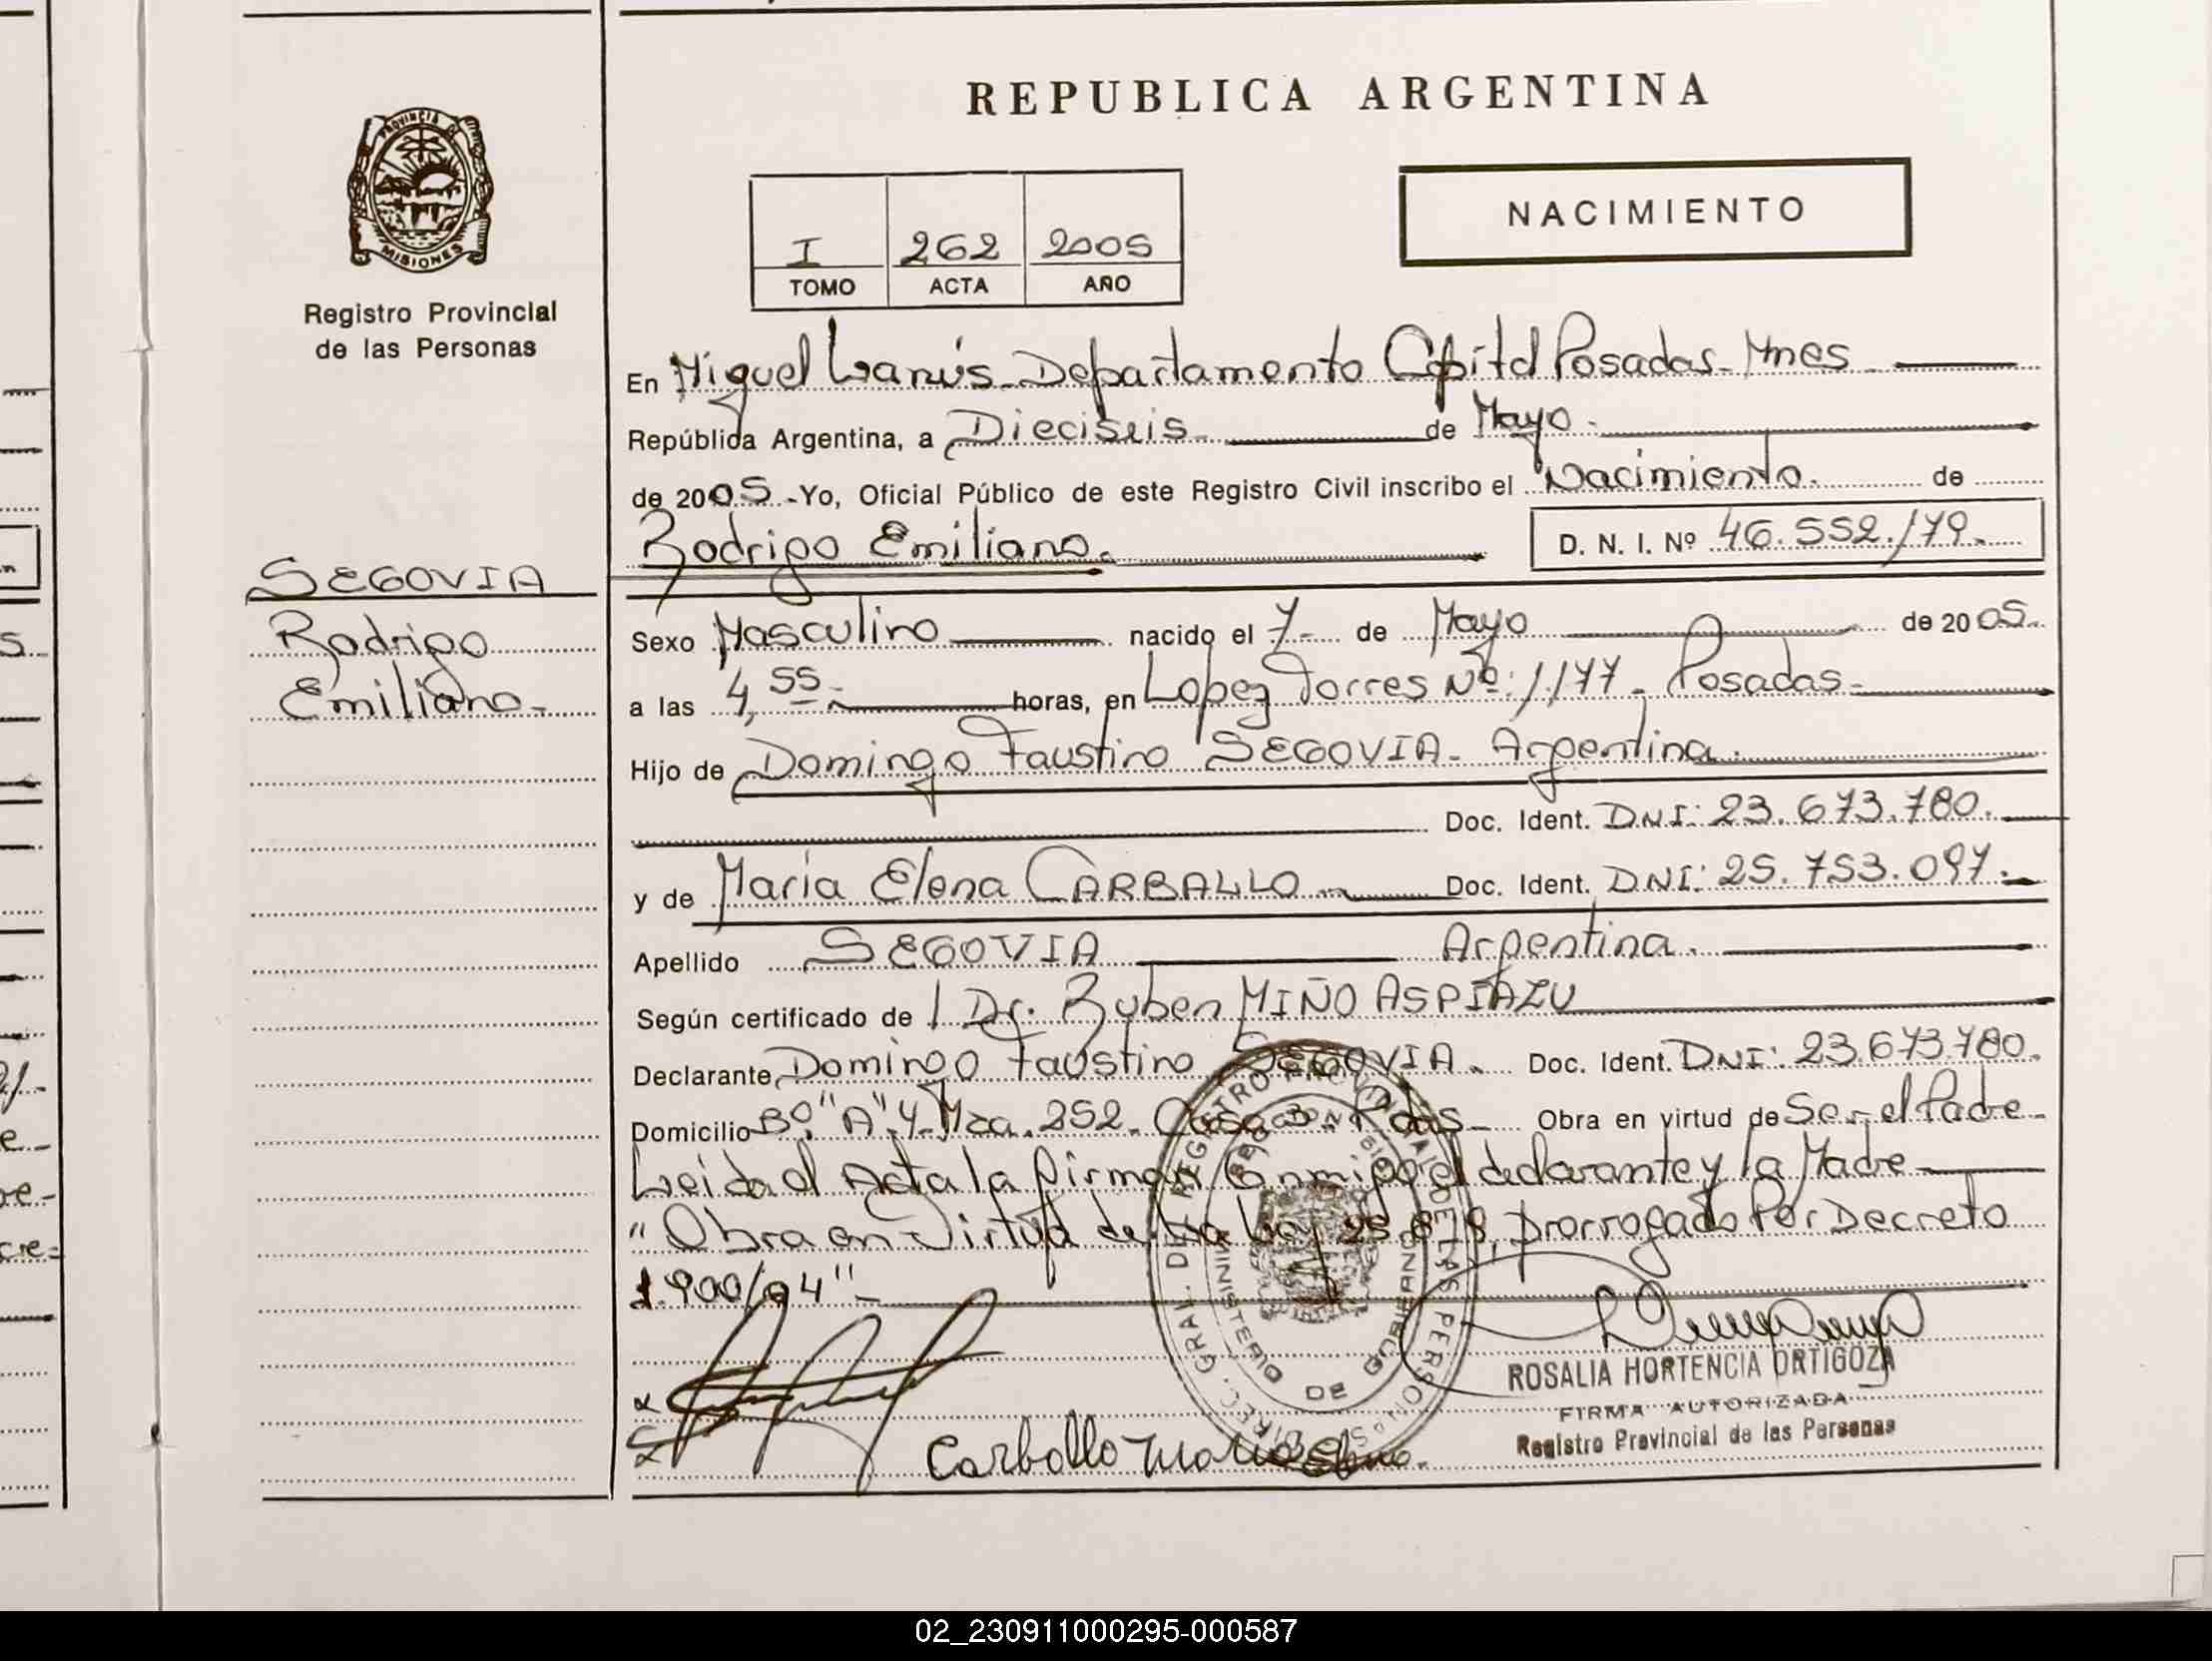 REPUBLICA ARGENTINA
PROVINCIA DE MISIONES
Registro Provincial
de las Personas
I 262 2005
TOMO ACTA AÑO
NACIMIENTO
En Miguel Lanús - Departamento Capital Posadas - Mnes
República Argentina, a Dieciseis de Mayo.
de 2005.-Yo, Oficial Público de este Registro Civil inscribo el Nacimiento. de
Rodrigo Emiliano. D. N. I. Nº 46.552.179.
SEGOVIA
Rodrigo
Emiliano-
Sexo Masculino nacido el 7- de Mayo de 2005.
a las 4,55- horas, en Lopez Torres Nº: 1.177 - Posadas-
Hijo de Domingo Faustino SEGOVIA - Argentina.
Doc. Ident. DNI: 23.673.780.
y de Maria Elena CARBALLO Doc. Ident. DNI: 25.753.097.
Apellido SEGOVIA Argentina.
Según certificado de / Dr. Ruben MIÑO ASPIAZU
Declarante Domingo Faustino SEGOVIA. Doc. Ident. DNI: 23.673.780.
Domicilio Bº "A" 4 - Mza. 252 - Casa 3 - Pdas - Obra en virtud de Ser el Padre
Leida el Acta la firman Conmigo el declarante y la Madre
"Obra en Virtud de la Ley 25.819, prorrogado Por Decreto
1.900/04"-
DIREC. GRAL. DEL REGISTRO PROVINCIAL DE LAS PERSONAS
MINISTERIO DE GOBIERNO
ROSALIA HORTENCIA ORTIGOZA
FIRMA AUTORIZADA
Registro Provincial de las Personas
Carballo Maria Elena.
02_230911000295-000587